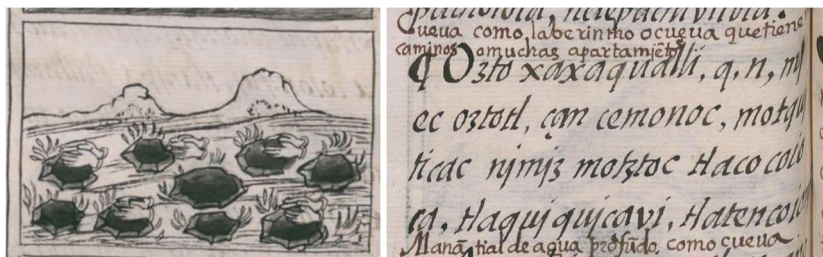 Cueva como laberinto o cueva que tiene
caminos o muchas apartamiētos
¶ Ozto xaxaqualli, q, n, mi
ec oztotl, çan cemonoc, motqu
ticac njmjz motztoc tlaco colo
ca, tlaqujqujcavi, tlatencolo
Manātial de agua profūdo, como cueva